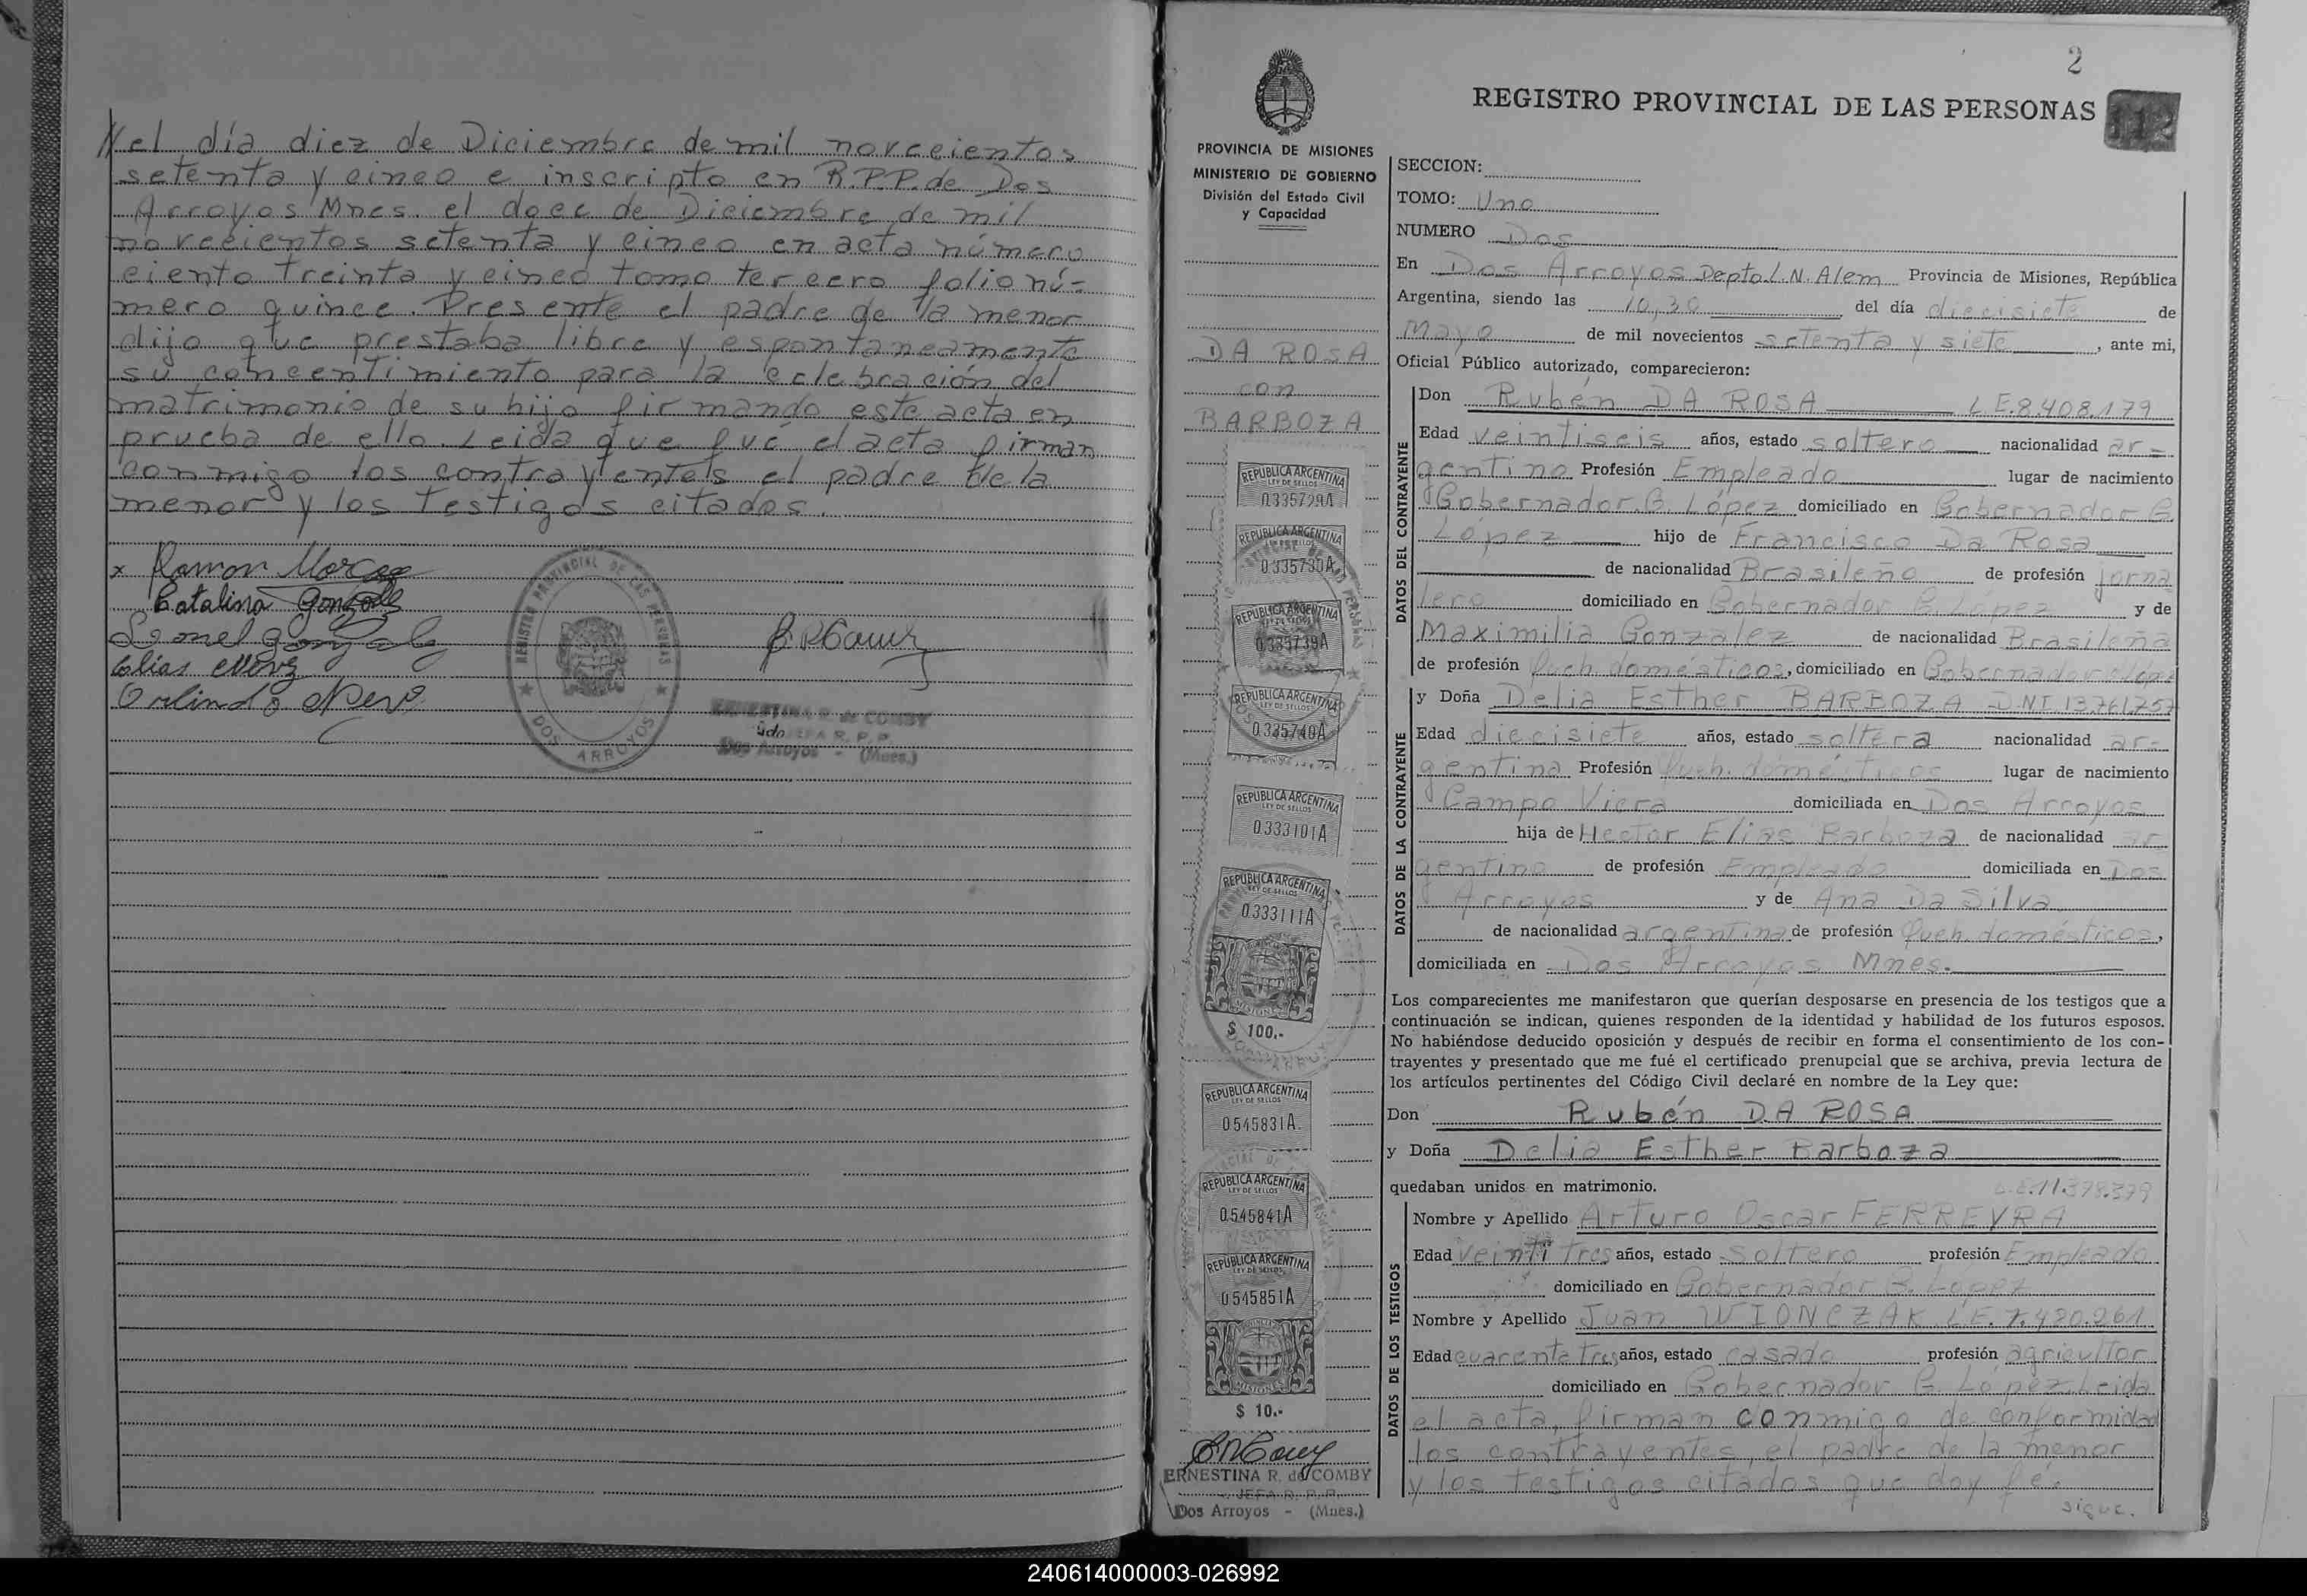 el día diez de Diciembre de mil novecientos
setenta y cinco e inscripto en R.P.P. de Dos
Arroyos Mnes. el doce de Diciembre de mil
novecientos setenta y cinco en acta número
ciento treinta y cinco tomo tercero folio nú-
mero quince. Presente el padre de la menor
dijo que prestaba libre y espontaneamente
su concentimiento para la celebración del
matrimonio de su hijo firmando este acta en
prueba de ello. Leida que fué el acta firman
conmigo los contrayentes el padre de la
menor y los testigos citados.
x Ramon
Catalina Gonzalez
Leonel Gonzalez
Elias
Orlindo
REGISTRO PROVINCIAL DE LAS PERSONAS
DOS ARROYOS
ERNESTINA R. de COMBY
JEFA R. P. P.
Dos Arroyos - (Mnes.)
2
REGISTRO PROVINCIAL DE LAS PERSONAS
112
PROVINCIA DE MISIONES
MINISTERIO DE GOBIERNO
División del Estado Civil
y Capacidad
DA ROSA
con
BARBOZA
REPUBLICA ARGENTINA
LEY DE SELLOS
0335729A
REPUBLICA ARGENTINA
0335730A
REPUBLICA ARGENTINA
0335739A
REPUBLICA ARGENTINA
LEY DE SELLOS
0335740A
REPUBLICA ARGENTINA
LEY DE SELLOS
0333101A
REPUBLICA ARGENTINA
LEY DE SELLOS
0333111A
MISIONES
$ 100.-
REPUBLICA ARGENTINA
LEY DE SELLOS
0545831A
REPUBLICA ARGENTINA
LEY DE SELLOS
0545841A
REPUBLICA ARGENTINA
LEY DE SELLOS
0545851A
MISIONES
$ 10.-
ERNESTINA R. de COMBY
JEFA R. P. P.
Dos Arroyos - (Mnes.)
SECCION:
TOMO: Uno
NUMERO Dos
En Dos Arroyos Depto L.N. Alem Provincia de Misiones, República
Argentina, siendo las 10,30 del día diecisiete de
Mayo de mil novecientos setenta y siete, ante mi,
Oficial Público autorizado, comparecieron:
DATOS DEL CONTRAYENTE
Don Rubén DA ROSA L.E.8.408.179
Edad veintiseis años, estado soltero nacionalidad ar-
gentino Profesión Empleado lugar de nacimiento
Gobernador G. López domiciliado en Gobernador G.
López hijo de Francisco Da Rosa
de nacionalidad Brasileño de profesión jorna
lero domiciliado en Gobernador G. López y de
Maximilia Gonzalez de nacionalidad Brasileña
de profesión Queh. domésticos, domiciliado en Gobernador López
DATOS DE LA CONTRAYENTE
y Doña Delia Esther BARBOZA D.N.I 13.761.757
Edad diecisiete años, estado soltera nacionalidad ar-
gentina Profesión Queh. domésticos lugar de nacimiento
Campo Viera domiciliada en Dos Arroyos
hija de Hector Elias Barboza de nacionalidad ar
gentino de profesión Empleado domiciliada en Dos
Arroyos y de Ana Da Silva
de nacionalidad argentina de profesión Queh. domésticos,
domiciliada en Dos Arroyos Mnes.
Los comparecientes me manifestaron que querían desposarse en presencia de los testigos que a
continuación se indican, quienes responden de la identidad y habilidad de los futuros esposos.
No habiéndose deducido oposición y después de recibir en forma el consentimiento de los con-
trayentes y presentado que me fué el certificado prenupcial que se archiva, previa lectura de
los artículos pertinentes del Código Civil declaré en nombre de la Ley que:
Don Rubén DA ROSA
y Doña Delia Esther Barboza
quedaban unidos en matrimonio. L.E.11.398.379
DATOS DE LOS TESTIGOS
Nombre y Apellido Arturo Oscar FERREYRA
Edad veinti tres años, estado soltero profesión Empleado
domiciliado en Gobernador G. López
Nombre y Apellido Juan WIONCZAK L.E. 7.480.261
Edad cuarenta tres años, estado casado profesión agricultor
domiciliado en Gobernador G. López. Leida
el acta, firman conmigo de conformidad
los contrayentes, el padre de la menor
y los testigos citados que doy fé.
sigue.
240614000003-026992